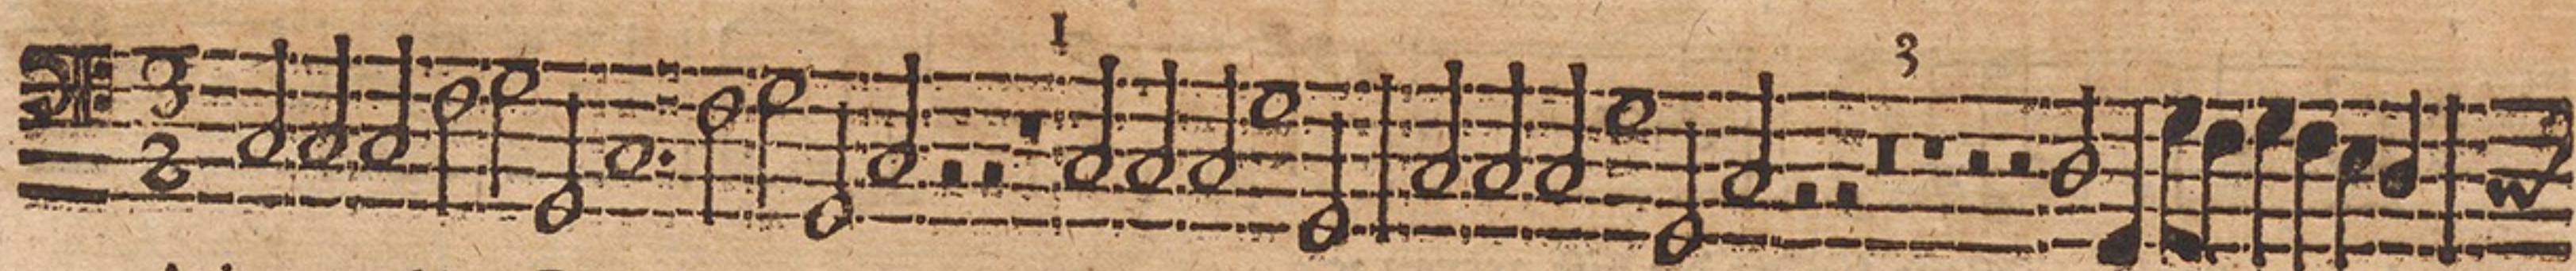 1 3
3
2